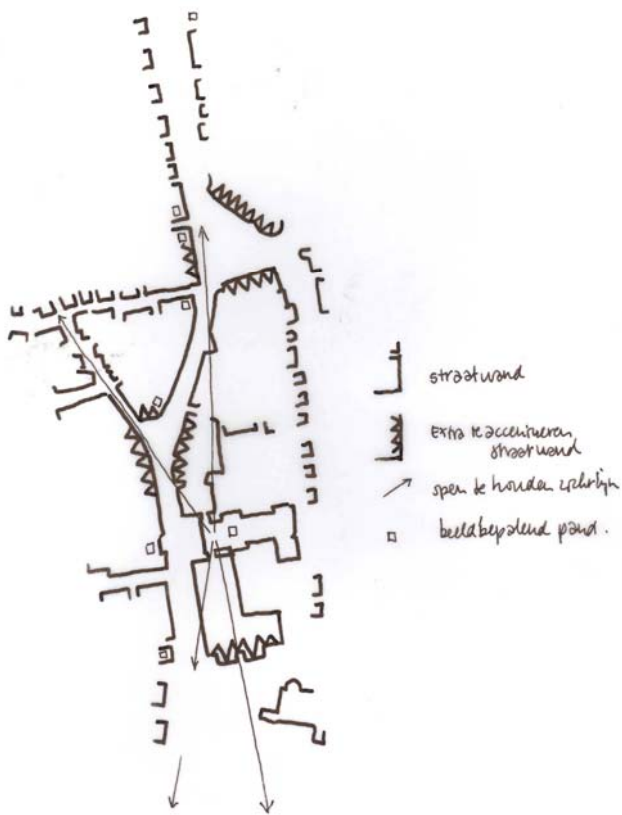 straatwand
Extra te accentueren
straatwand
open te houden zichtlijn
beeldbepalend pand.